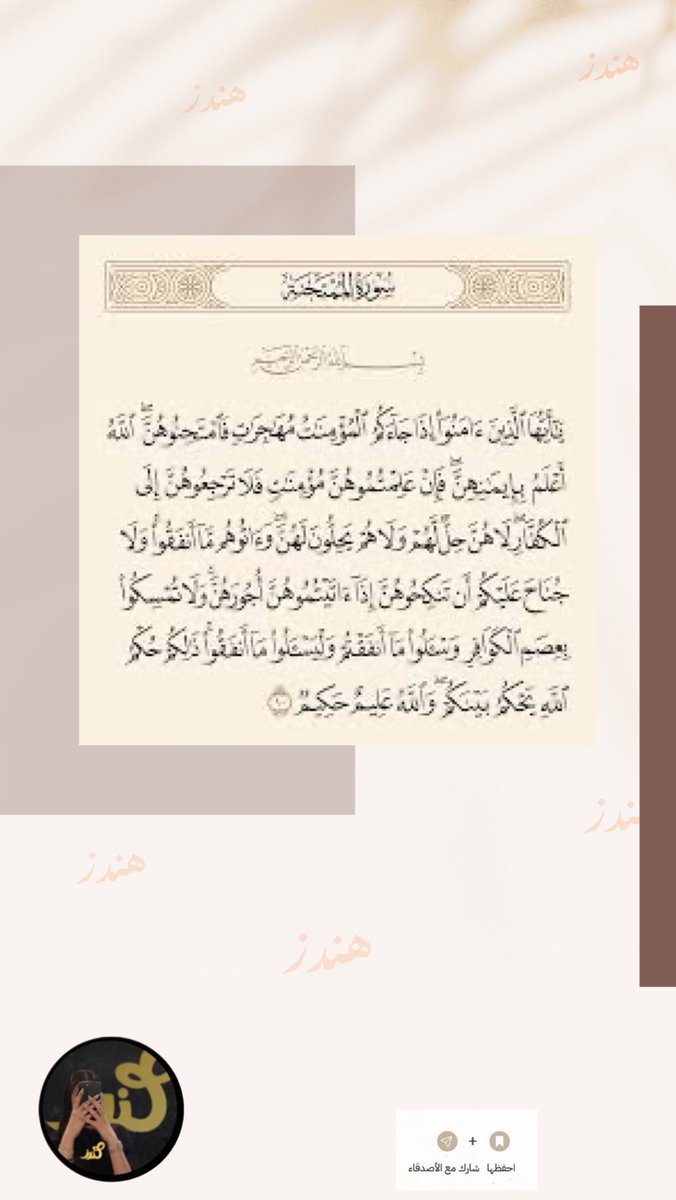 هندز
هندز
سُورَةُ المُمْتَحنَةِ
بِسْمِ اللَّهِ الرَّحْمَٰنِ الرَّحِيمِ
يَٰٓأَيُّهَا ٱلَّذِينَ ءَامَنُوٓا۟ إِذَا جَآءَكُمُ ٱلْمُؤْمِنَٰتُ مُهَٰجِرَٰتٍ فَٱمْتَحِنُوهُنَّ ۖ ٱللَّهُ
أَعْلَمُ بِإِيمَٰنِهِنَّ ۖ فَإِنْ عَلِمْتُمُوهُنَّ مُؤْمِنَٰتٍ فَلَا تَرْجِعُوهُنَّ إِلَى
ٱلْكُفَّارِ ۖ لَا هُنَّ حِلٌّ لَّهُمْ وَلَا هُمْ يَحِلُّونَ لَهُنَّ ۖ وَءَاتُوهُم مَّآ أَنفَقُوا۟ ۚ وَلَا
جُنَاحَ عَلَيْكُمْ أَن تَنكِحُوهُنَّ إِذَآ ءَاتَيْتُمُوهُنَّ أُجُورَهُنَّ ۚ وَلَا تُمْسِكُوا۟
بِعِصَمِ ٱلْكَوَافِرِ وَسْـَٔلُوا۟ مَآ أَنفَقْتُمْ وَلْيَسْـَٔلُوا۟ مَآ أَنفَقُوا۟ ۚ ذَٰلِكُمْ حُكْمُ
ٱللَّهِ يَحْكُمُ بَيْنَكُمْ ۖ وَٱللَّهُ عَلِيمٌ حَكِيمٌ ١٠
هندز
هندز
هندز
هندز
احفظها + شارك مع الأصدقاء